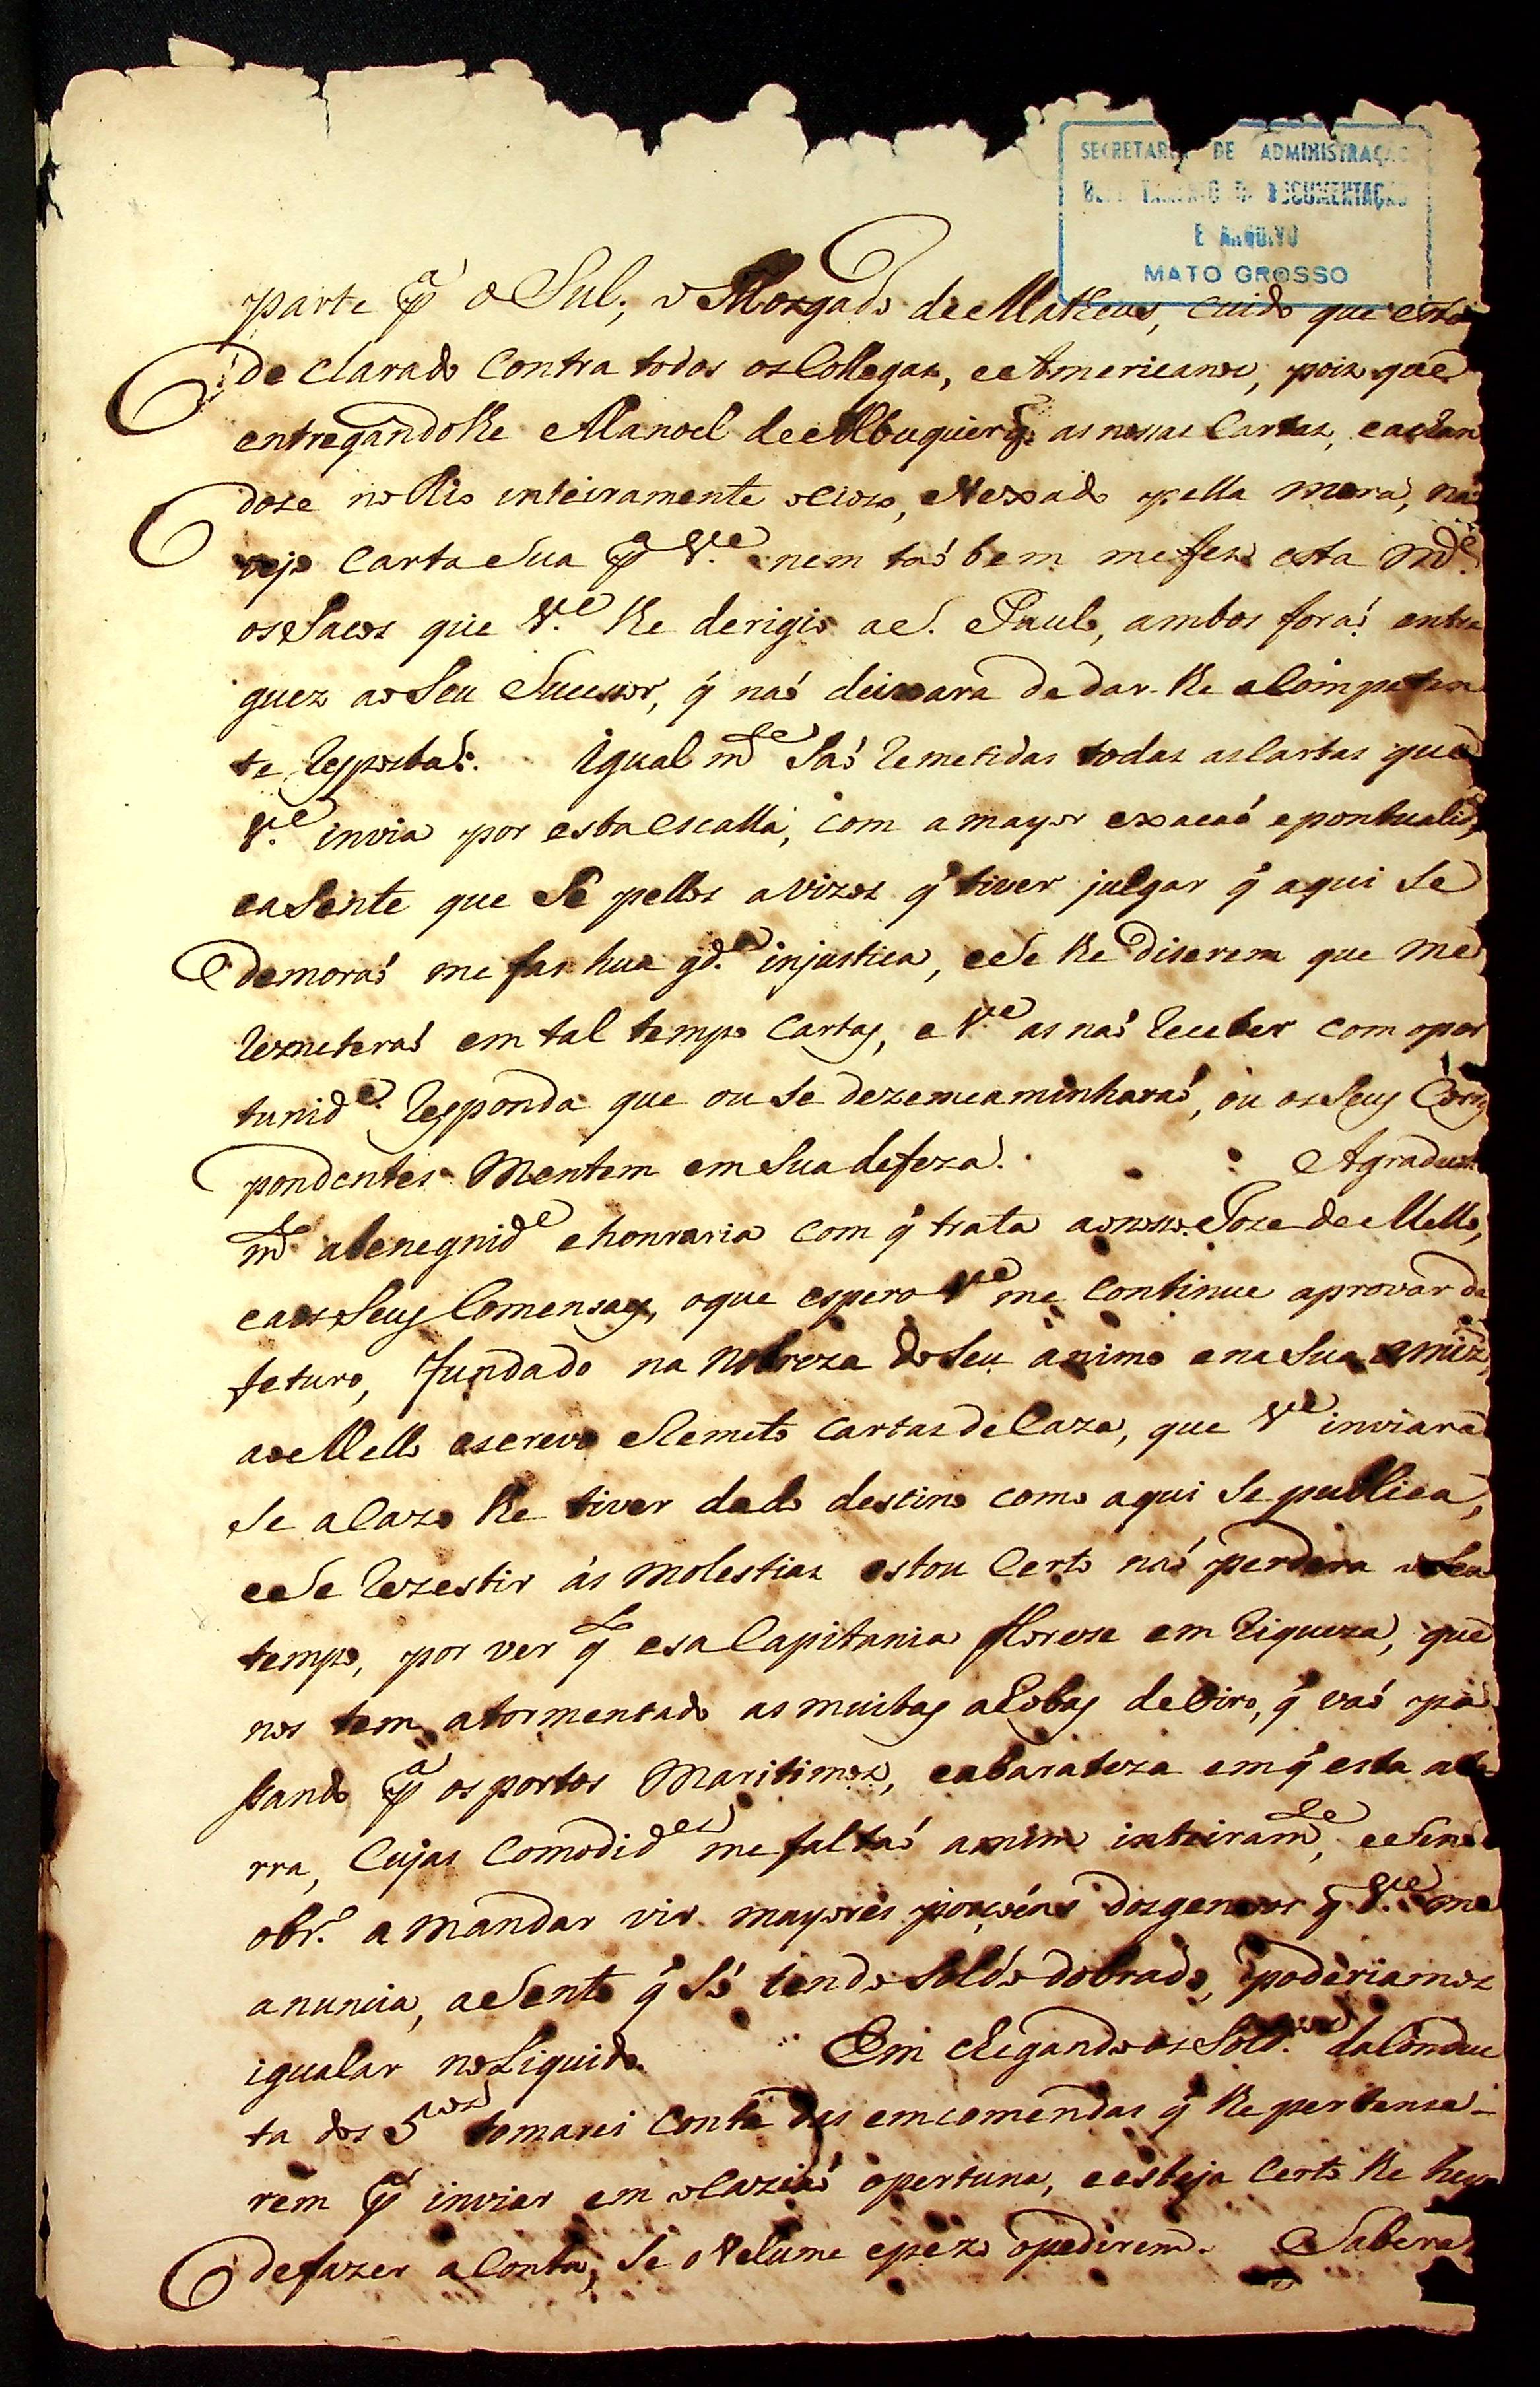 SECRETARIA DE ADMINISTRAÇÃO
DE DOCUMENTAÇÃO
E ARQUIVO
MATO GROSSO
parte pª o Sul; o Morgado de Matheus, cuido que esta
declarado contra todos os Collegas, e Americanos, pois que
entregandolhe Manoel de Albuquerq. as nossas Cartas, e achan
dose no Rio inteiramente ociozo, e vexado pella mora, naó
vejo Carta Sua pª V.e nem taó bem me fez esta md.e
os Sacos que V.e lhe derigio a S. Paulo, ambos foraó entre
guez ao Seu Sucessor, q̃ naó deixara de dar-lhe a Competen
te Resposta. Igual m.te Saó Remetidas todas as Cartas que
V.e invia por esta escalla, com a mayor exacaó e pontualid,
e a Sente que Se pellos avizos q̃ tiver julgar q̃ aqui Se
demoraó me fas hua gd.e injustica, e Se lhe diserem que me
Remeteraó em tal tempo Cartas, e V.e as naó Receber com opor
tunid.e Responda que ou Se dezemcaminharaó, ou os Seus Corres
pondentes mentem em Sua defeza. Agradeço
m.to a benegnid.e e honraria com q̃ trata ao nosso Joze de Mello,
e aos Seus Comensaes, o que espero V.e me Continue aprovar da
feturo, fundado na nobreza do Seu animo e na Sua amiz.
ao Mello escrevo e Remeto Cartas de Caza, que V.e inviara
Se a Cazo lhe tiver dado destino como aqui Se publica,
e Se Rezestir ás molestias estou Certo naó perdera o Seu
tempo, por ver q̃ esa Capitania florese em Riqueza, que
nos tem atormentado as muitas arobas de Oiro, q̃ vaó pa
sando pª os portos Maritimos, e a barateza em q̃ esta a te
rra, Cujas Comodid.es me faltaó a mim inteiram.te, e Sendo
obr.o a mandar vir mayores porçoéns dos generos q̃ V.e me
anuncia, a Sento q̃ Só tendo Soldo dobrado, poderiamos
igualar no Liquido. Em chegando os Sold.os da Condu
ta dos 5.tos tomarei Conta das emcomendas q̃ lhe pertense-
rem pª inviar em o Caziaó opertuna, e esteja Certo lhe hey
de fazer a Conta, Se o Volume e pezo o pedirem. Sabera